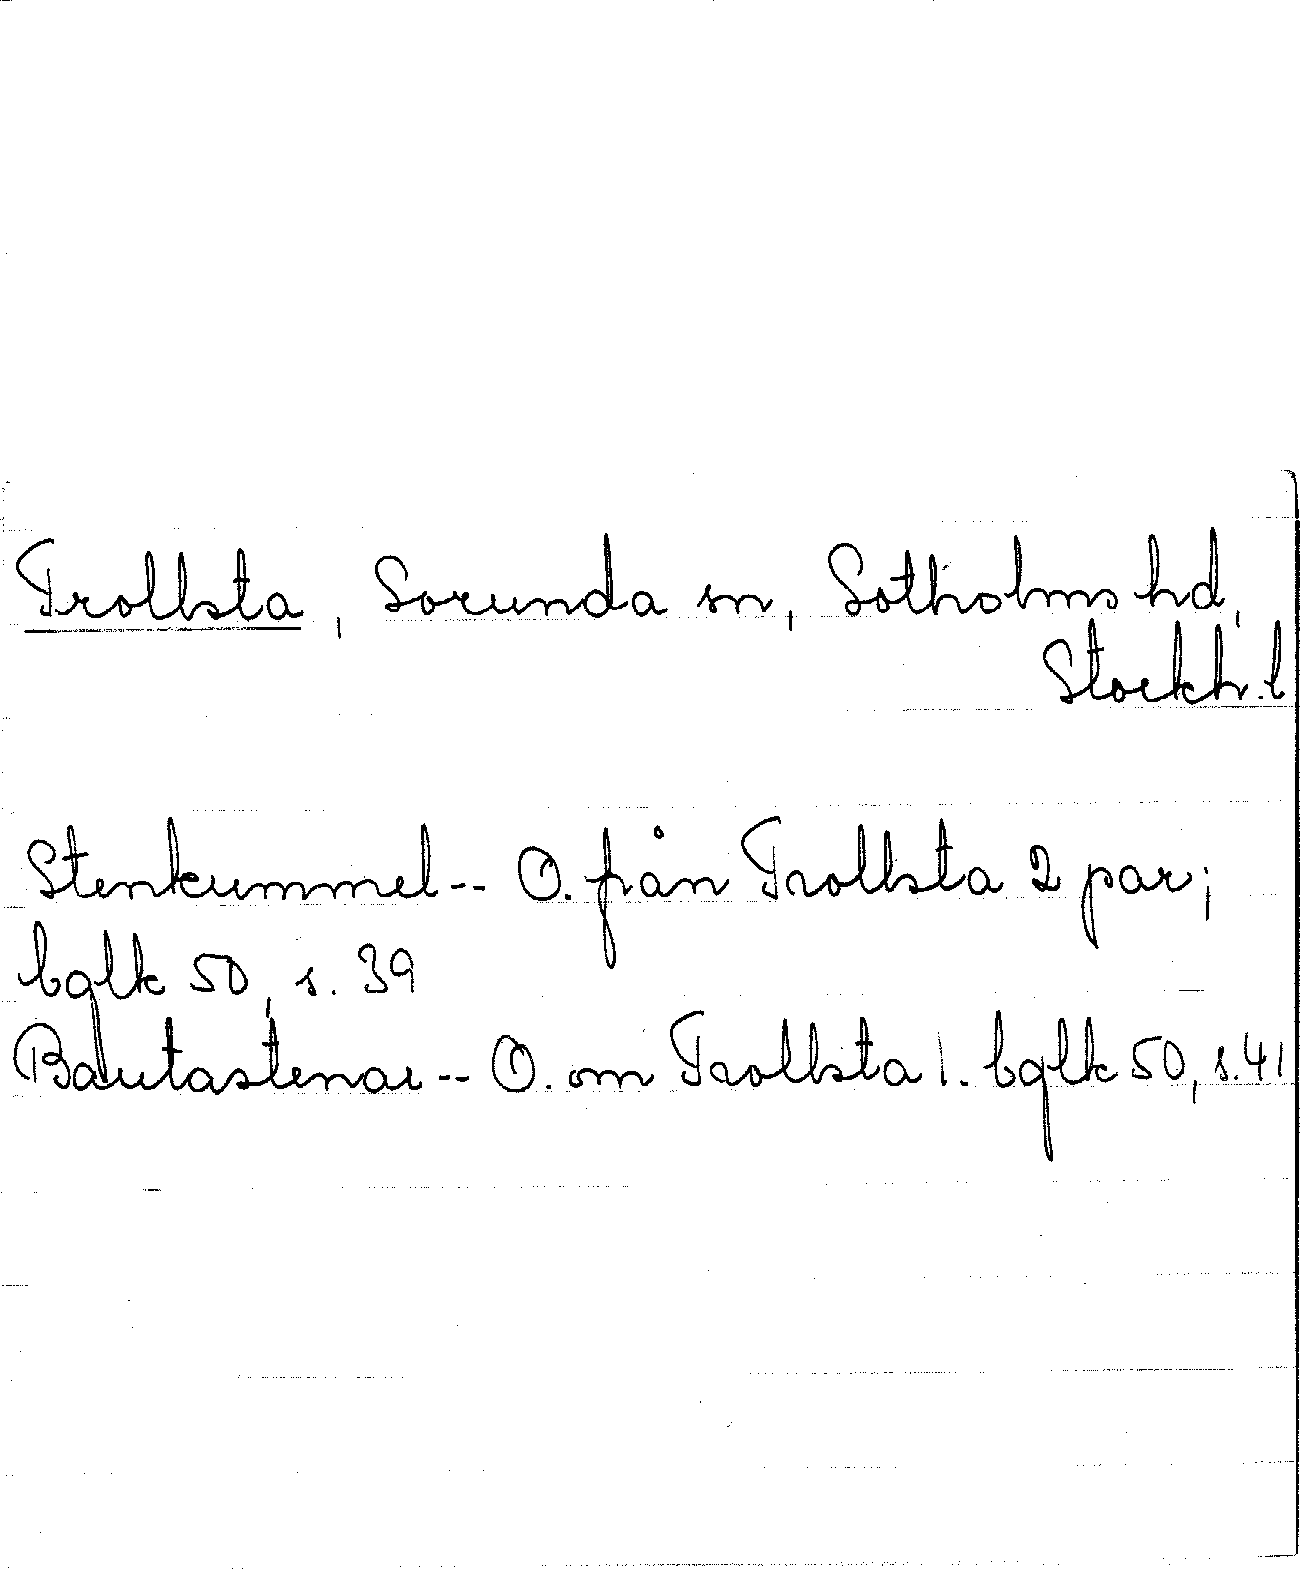 Trollsta, Sorunda sn, Sotholms hd,
Stockh. l
Stenkummel-- O. från Trollsta 2 par;
bglk 50, s. 39
Bautastenar-- O. om Trollsta 1. bglk 50, s. 41